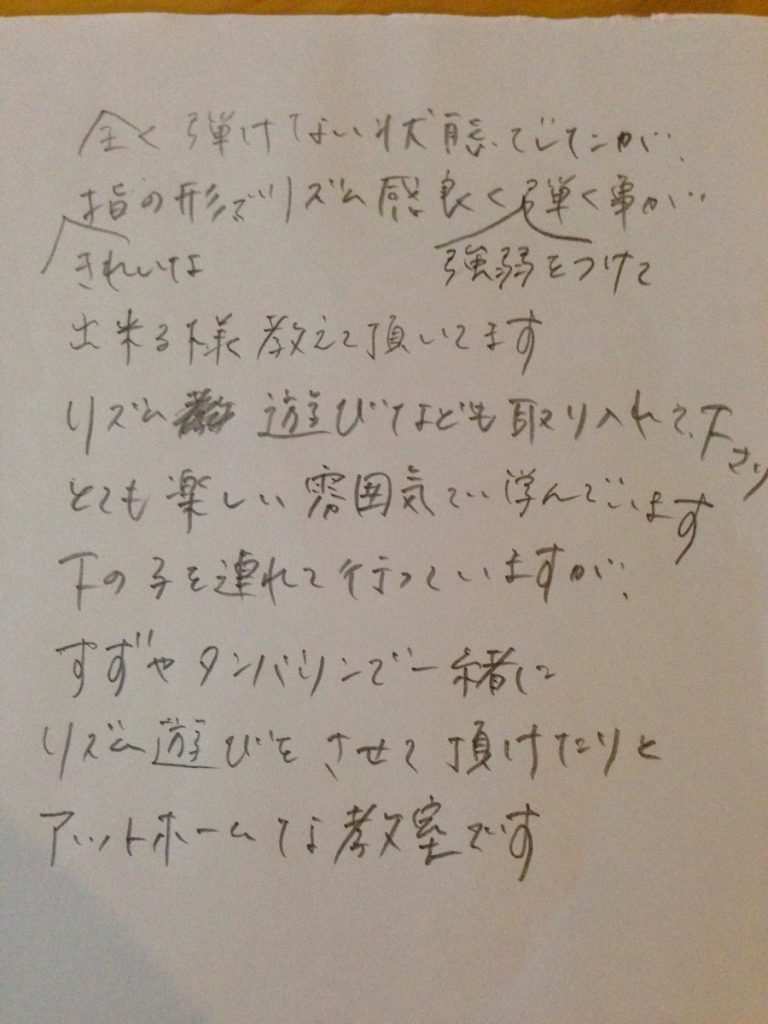 全く弾けない状態でしたが、
指の形でリズム感良く弾く事が
きれいな 強弱をつけて
出来る様教えて頂いてます
リズム遊びなども取り入れて下さり
とても楽しい雰囲気で学んでいます
下の子を連れて行っていますが、
すずやタンバリンで一緒に
リズム遊びをさせて頂けたりと
アットホームな教室です